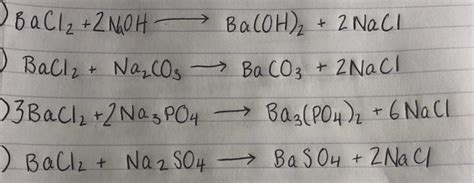 ) BaCl₂ + 2NaOH ⟶ Ba(OH)₂ + 2NaCl
) BaCl₂ + Na₂CO₃ ⟶ BaCO₃ + 2NaCl
) 3BaCl₂ + 2Na₃PO₄ ⟶ Ba₃(PO₄)₂ + 6NaCl
) BaCl₂ + Na₂SO₄ ⟶ BaSO₄ + 2NaCl